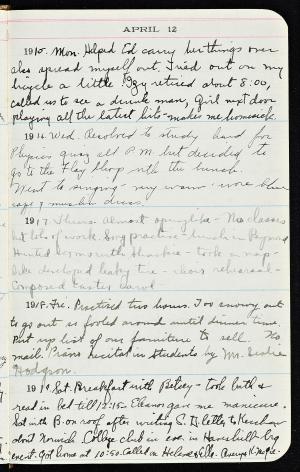 APRIL 12
1915. Mon. Helped Ed carry her things over
also spread myself out. Tried out on my
bicycle a little. Izy retired about 8:00,
called us to see a drunk man, Girl next door
playing all the latest hits - makes me homesick.
1916 Wed. Resolved to study hard for
Physics quiz all P.M. but decided to
go to the Flag Shop with the bunch.
Went to singing - very warm - wore blue
cape & muslin dress.
1917 Thurs. Almost springlike - No classes
but lots of work. Song practice - lunch in
Hunted - took a nap -
developed leaky tire - choir rehearsal -
Composed Easter Carol.
1918. Fri. Practiced two hours. Too snowy out
to go out so fooled around until dinner time.
Put up list of our furniture to sell. No
mail. Piano recital in Students by Mr.
Hodgson.
1919 Sat. Breakfast with Betsey - took bath &
read in bed till 12:15. Eleanor gave me manicure.
Sat with B. on roof after writing S. D. letter to
don't Norwich College club in eve. in Haverhill - big
event. Got home at 10:50. Called on Helene